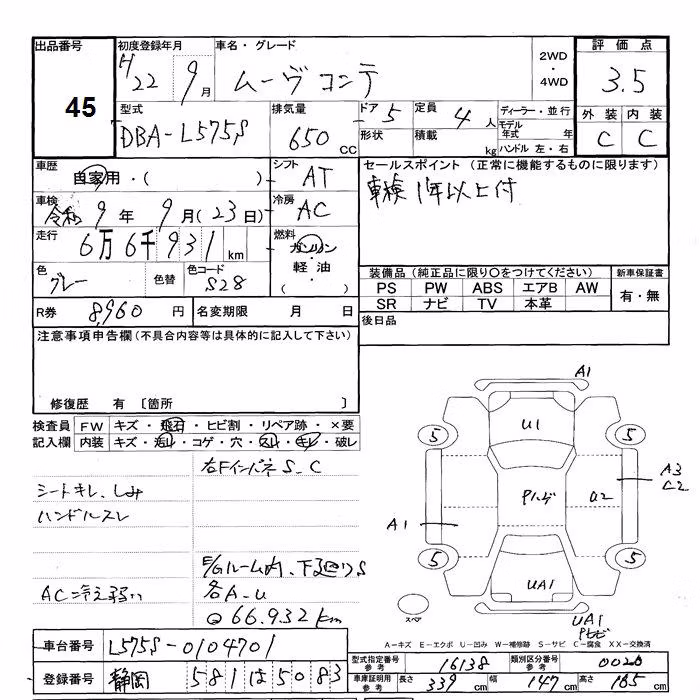 出品番号 初度登録年月 車名・グレード 2WD・4WD 評価点
45 H22 9月 ムーヴコンテ 3.5
外装 内装
C C
型式 排気量 ドア 5 定員 4人 ディーラー・並行
DBA-L575S 650cc 形状 積載 kg モデル年式 年
ハンドル 左・右
車歴 自家用・( ) シフト AT セールスポイント (正常に機能するものに限ります)
車検 令和9年9月(23日) 冷房 AC 車検1年以上付
走行 6万6千931km 燃料 ガソリン・軽油・( )
色 グレー 色替 色コード S28 装備品 (純正品に限り〇をつけてください) 新車保証書
PS PW ABS エアB AW 有・無
SR ナビ TV 本革
R券 8,960円 名変期限 月 日 後日品
注意事項申告欄 (不具合内容等は具体的に記入して下さい)
修復歴 有 〔箇所 〕
検査員記入欄 FW キズ・飛石・ヒビ割・リペア跡・×要
内装 キズ・汚れ・コゲ・穴・スレ・キレ・破レ
右Fインパネ S-C
シートキレ、しみ
ハンドルスレ
E/Gルーム内、下廻りS
AC冷え弱い 各A-U
◎66.932km
A1
U1
5 5
A3
C2
A1 Pハゲ U2
5 5
UA1
スペア
UA1
A-キズ E-エクボ U-凹み W-補修跡 S-サビ C-腐食 XX-交換済
車台番号 L575S-0104701
登録番号 静岡 581 は 5083
型式指定番号 参考 16138 類別区分番号 参考 0020
車庫証明用 参考 長さ 339cm 幅 147cm 高さ 165cm